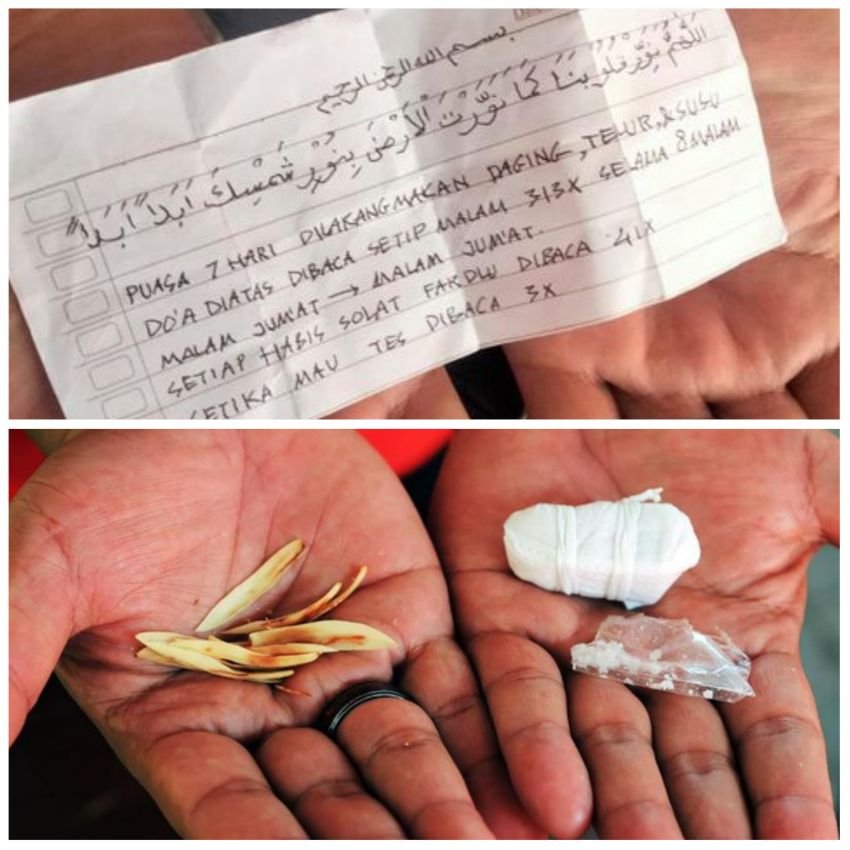 بسم الله الرحمن الرحيم
اللهم ينور قلوبنا كما نورت الأرض بنور شمسك أبدا أبدا
PUASA 7 HARI DILARANG MAKAN DAGING, TELUR, & SUSU
DO'A DIATAS DIBACA SETIP MALAM 313X SELAMA 8 MALAM
MALAM JUM'AT → MALAM JUM'AT.
SETIAP HABIS SOLAT FARDLU DIBACA 41X
KETIKA MAU TES DIBACA 3X